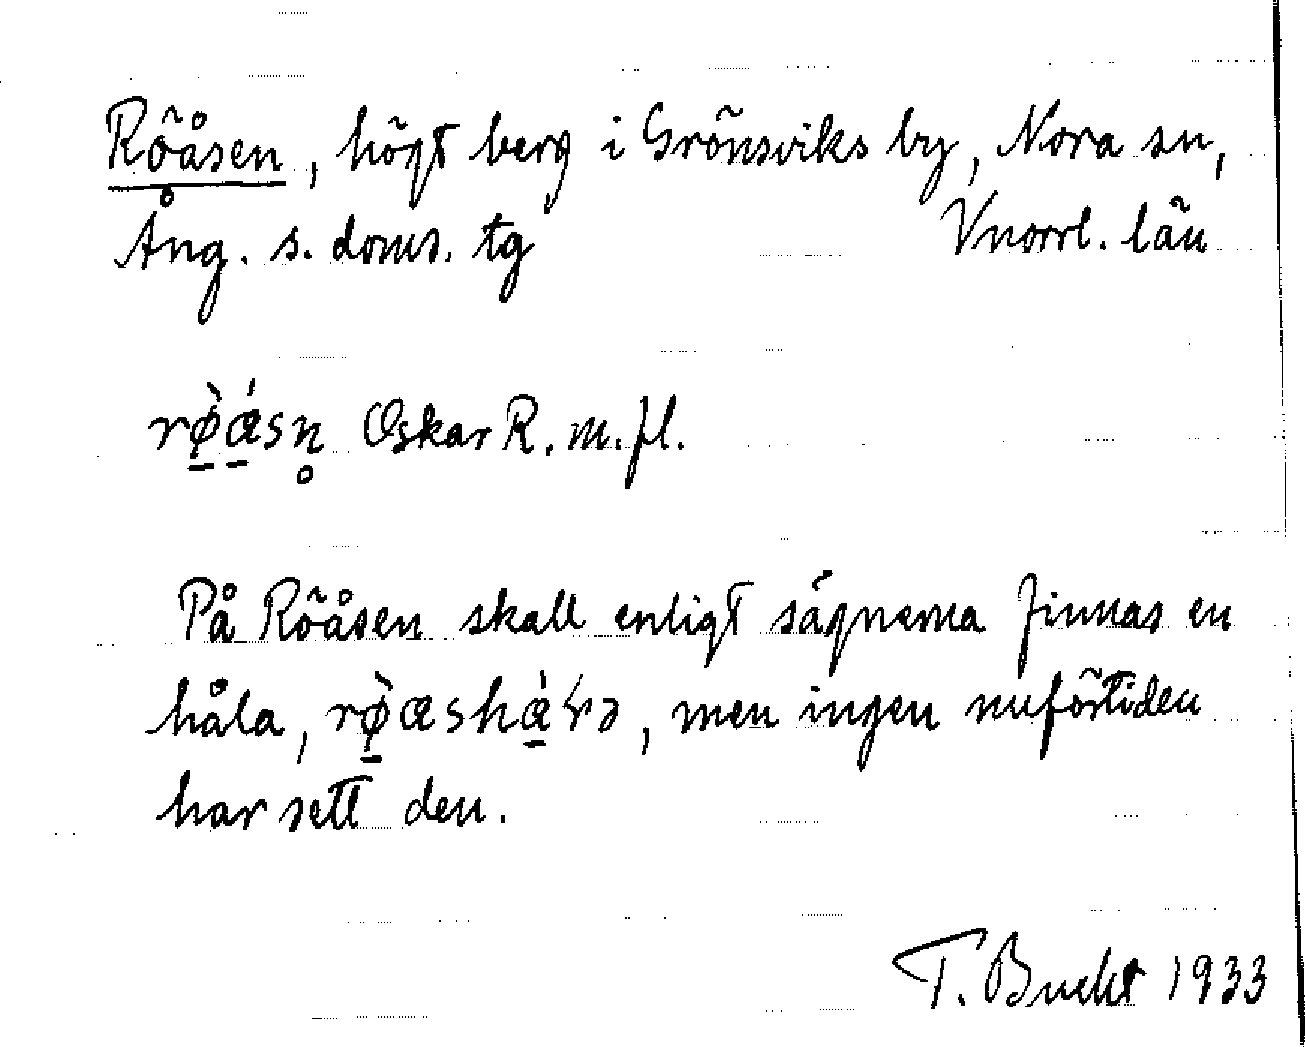 Röåsen, högt berg i Grönsviks by, Nora sn,
Ång. s. doms. tg Vnorrl. län
rø̱̀ɑ̱́sn̥ Oskar R. m. fl.
På Röåsen skall enligt sägnerna finnas en
håla, rø̱̀ɑshɑ̱́ɽɔ, men ingen nuförtiden
har sett den.
T. Bucht 1933